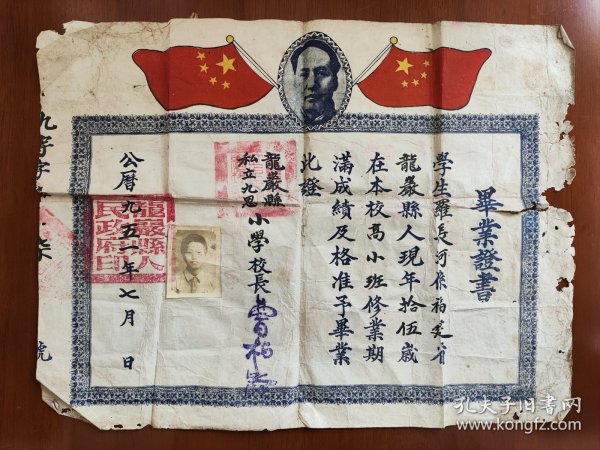 畢業證書
學生羅長河係福建省
龍巖縣人現年拾伍歲
在本校高小班修業期
滿成績及格准予畢業
此證
龍巖縣
私立九恩
小學校長
公曆一九五一年七月 日
龍巖縣人
民政府印
號
孔夫子旧书网
www.kongfz.com